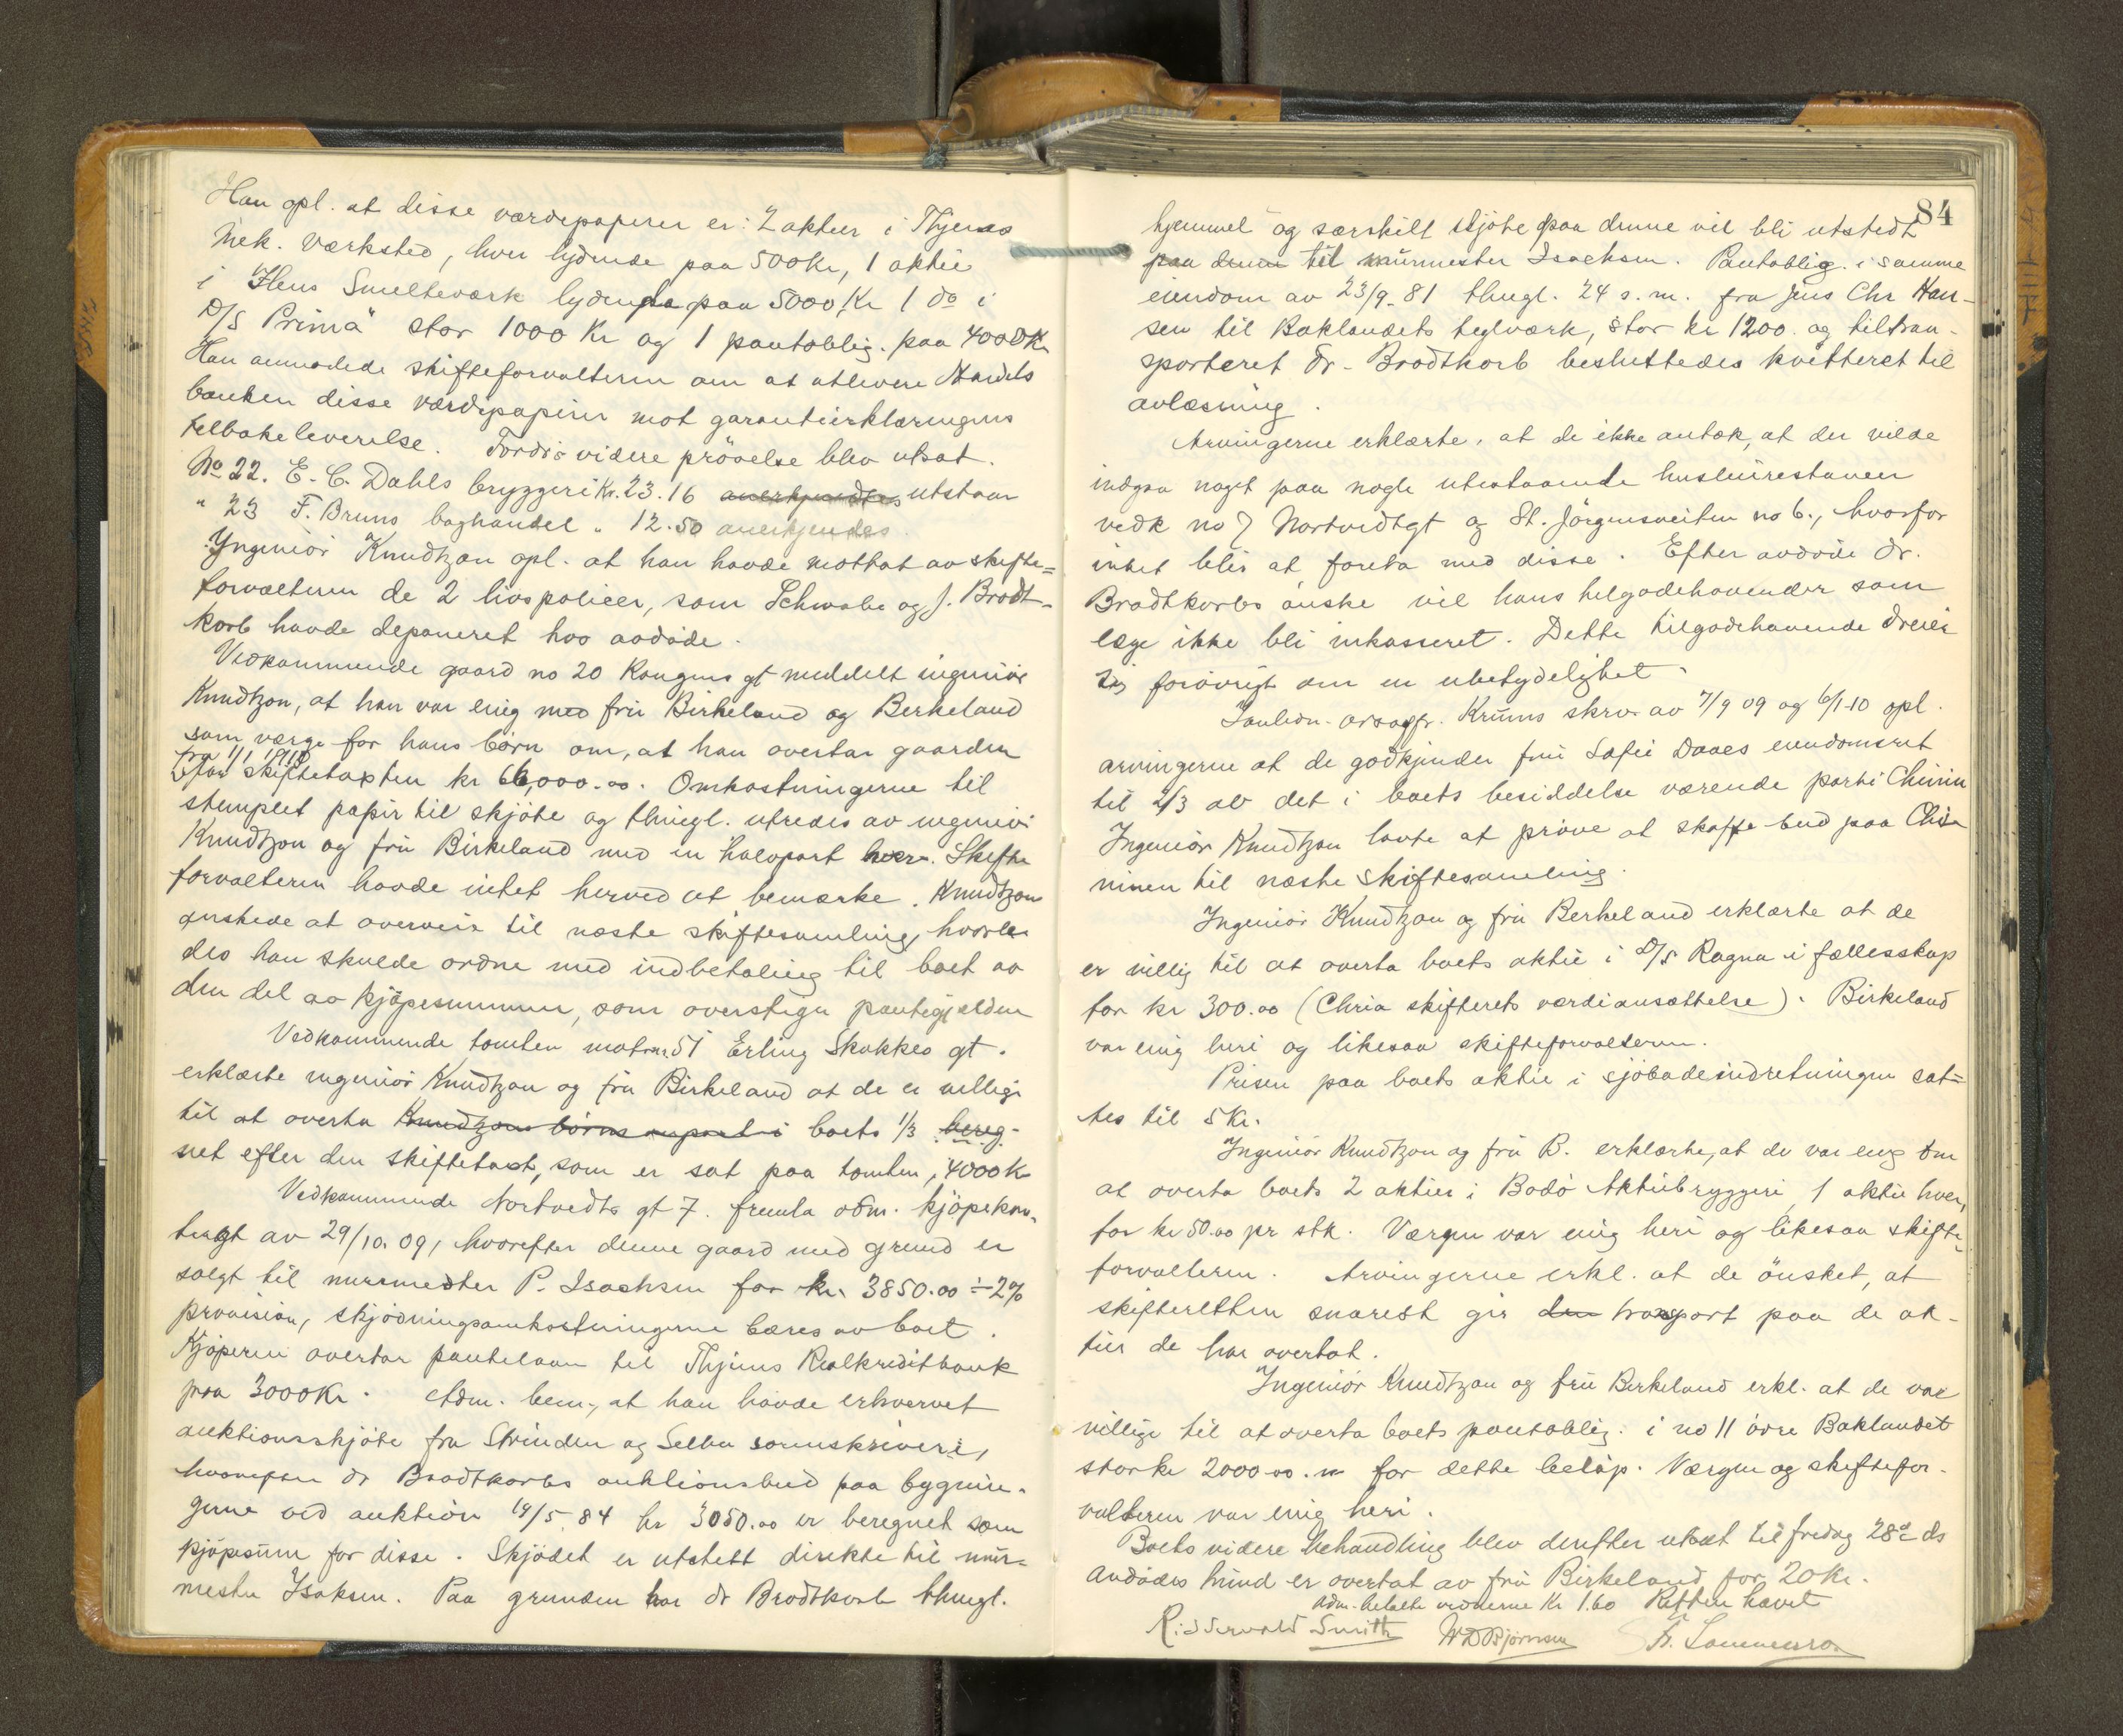 Han opl. at disse værdipapirer er: 2 aktier i Thjems
Mek. Værksted, hver lydende paa 500 Kr, 1 aktie
i Ilens Smelteværk lydende paa 5000 Kr 1 do i
D/S Prima" stor 1000 Kr og 1 pantoblig. paa 4000 Kr
Han anmodede skifteforvalteren om at utlevere Handels
banken disse værdipapirer mot garantierklæringens
tilbakeleverelse. Fordr. videre prövelse blev utsat.
No 22. E. C. Dahls bryggeri Kr. 23.16 anerkjendtes utstaar
" 23 F. Bruns boghandel " 12.50 anerkjendes
Ingeniör Knudtzon opl. at han havde mottat av skifte=
forvalteren de 2 livspolicer, som Schwabe og J. Brodt-
korb havde deponeret hos avdöde.
Vedkommende gaard no 20 Kongens gt meddelt ingeniör
Knudtzon, at han var enig med fru Birkeland og Berkeland
som værge for hans börn om, at han overtar gaarden
fra 1/1 1910
for skiftetaxten kr 66,000.00. Omkostningerne til
stemplet papir til skjöte og thingl. utredes av ingeniör
Knudtzon og fru Birkeland med en halvpart hver. Skifte
forvalteren havde intet herved at bemærke. Knudtzon
önskede at overveie til næste skiftesamling, hvorle
des han skulde ordne med indbetaling til boet av
den del av kjöpesummen, som overstiger pantegjælden
Vedkommende tomten matr. 51 Erling Skakkes gt.
erklærte ingeniör Knudtzon og fru Birkeland at de er villige
til at overta Knudtzons börns anpart i boets 1/3 bereg-
net efter den skiftetaxt, som er sat paa tomten, 4000 K
Vedkommende Nortvedts gt 7. fremla adm. kjöpekon-
tragt av 29/10. 09, hvorefter denne gaard med grund er
solgt til murmester P. Isachsen for kr. 3850.00 ÷ 2%
provision, skjödningsomkostningerne bæres av boet.
Kjöperen overtar pantelaan til Thjems Realkreditbank
paa 3000 Kr. Adm. bem., at han havde erhvervet
auktionsskjöte fra Strinden og Selbu sorenskriveri,
hvorefter dr Brodtkorbs auktionsbud paa bygnin-
gerne ved auktion 19/5 84 kr 3050.00 er beregnet som
kjöpesum for disse. Skjödet er utstett direkte til mur-
mester Isaksen. Paa grunden har dr Brodtkorb thingl.
84
hjemmel og særskilt skjöte paa denne vil bli utstedt
paa denne til murmester Isachsen. Pantoblig. i samme
eiendom av 23/9-81 thingl. 24 s. m. fra Jens Chr Han-
sen til Baklandets teglværk, stor kr 1200. og tiltran-
sporteret dr. Brodtkorb besluttedes kvitteret til
avlæsning.
Arvingerne erklærte, at de ikke antok, at der vilde
indgaa noget paa nogle utestaaende husleierestancer
vedk no 7 Nortvedtsgt og St. Jörgensveiten no 6., hvorfor
intet blir at foreta med disse. Efter avdöde dr.
Brodtkorbs önske vil hans tilgodehavender som
læge ikke bli inkasseret. Dette tilgodehavende dreier
sig forövrigt om en ubetydelighet.
I anledn. orsagfr. Krums skrv. av 7/9 09 og 6/1-10 opl.
arvingerne at de godkjender frk Sofie Daaes eiendomsret
til 2/3 av det i boets besiddelse værende parti Chinin
Ingeniör Knudtzon lovte at pröve at skaffe bud paa Chi-
ninen til næste skiftesamling.
Ingeniör Knudtzon og fru Berkeland erklærte at de
er villig til at overta boets aktie i D/S Ragna i fællesskap
for kr 300.00 (Chria skifterets værdiansættelse). Birkeland
var enig heri og likesaa skifteforvalteren.
Prisen paa boets aktie i sjöbadeindretningen sat=
tes til 5 Kr.
Ingeniör Knudtzon og fru B. erklærte, at de var enig om
at overta boets 2 aktier i Bodö Aktiebryggeri, 1 aktie hver,
for kr 50.00 pr stk. Værgen var enig heri og likesaa skifte-
forvalteren. Arvingerne erkl. at de önsket, at
skifteretten snarest gir den transport paa de ak-
tier de har overtat.
Ingeniör Knudtzon og fru Birkeland erkl. at de var
villige til at overta boets pantoblig. i no 11 övre Baklandet
stor kr 2000.00. for dette belöp. Værgen og skiftefor-
valteren var enig heri.
Boets videre behandling blev derefter utsat til fredag 28de ds
Avdödes hund er overtat av fru Birkeland for 20 Kr.
adm. betalte vidnerne Kr 1.60 Retten hævet
Ridderwold Smith W D Bjørnsen